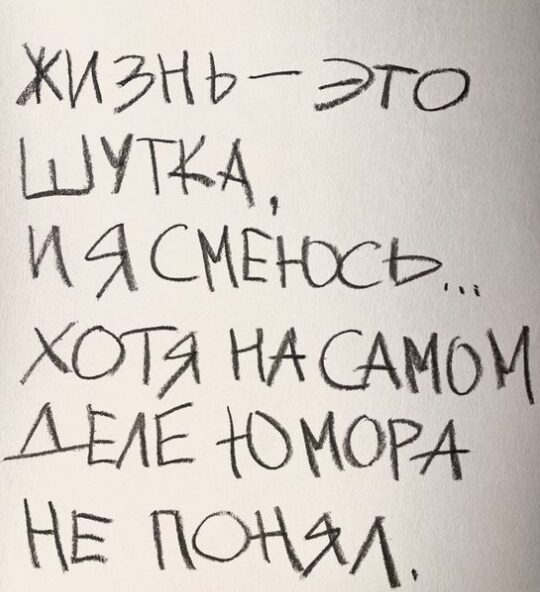 ЖИЗНЬ — ЭТО
ШУТКА,
И Я СМЕЮСЬ...
ХОТЯ НА САМОМ
ДЕЛЕ ЮМОРА
НЕ ПОНЯЛ.